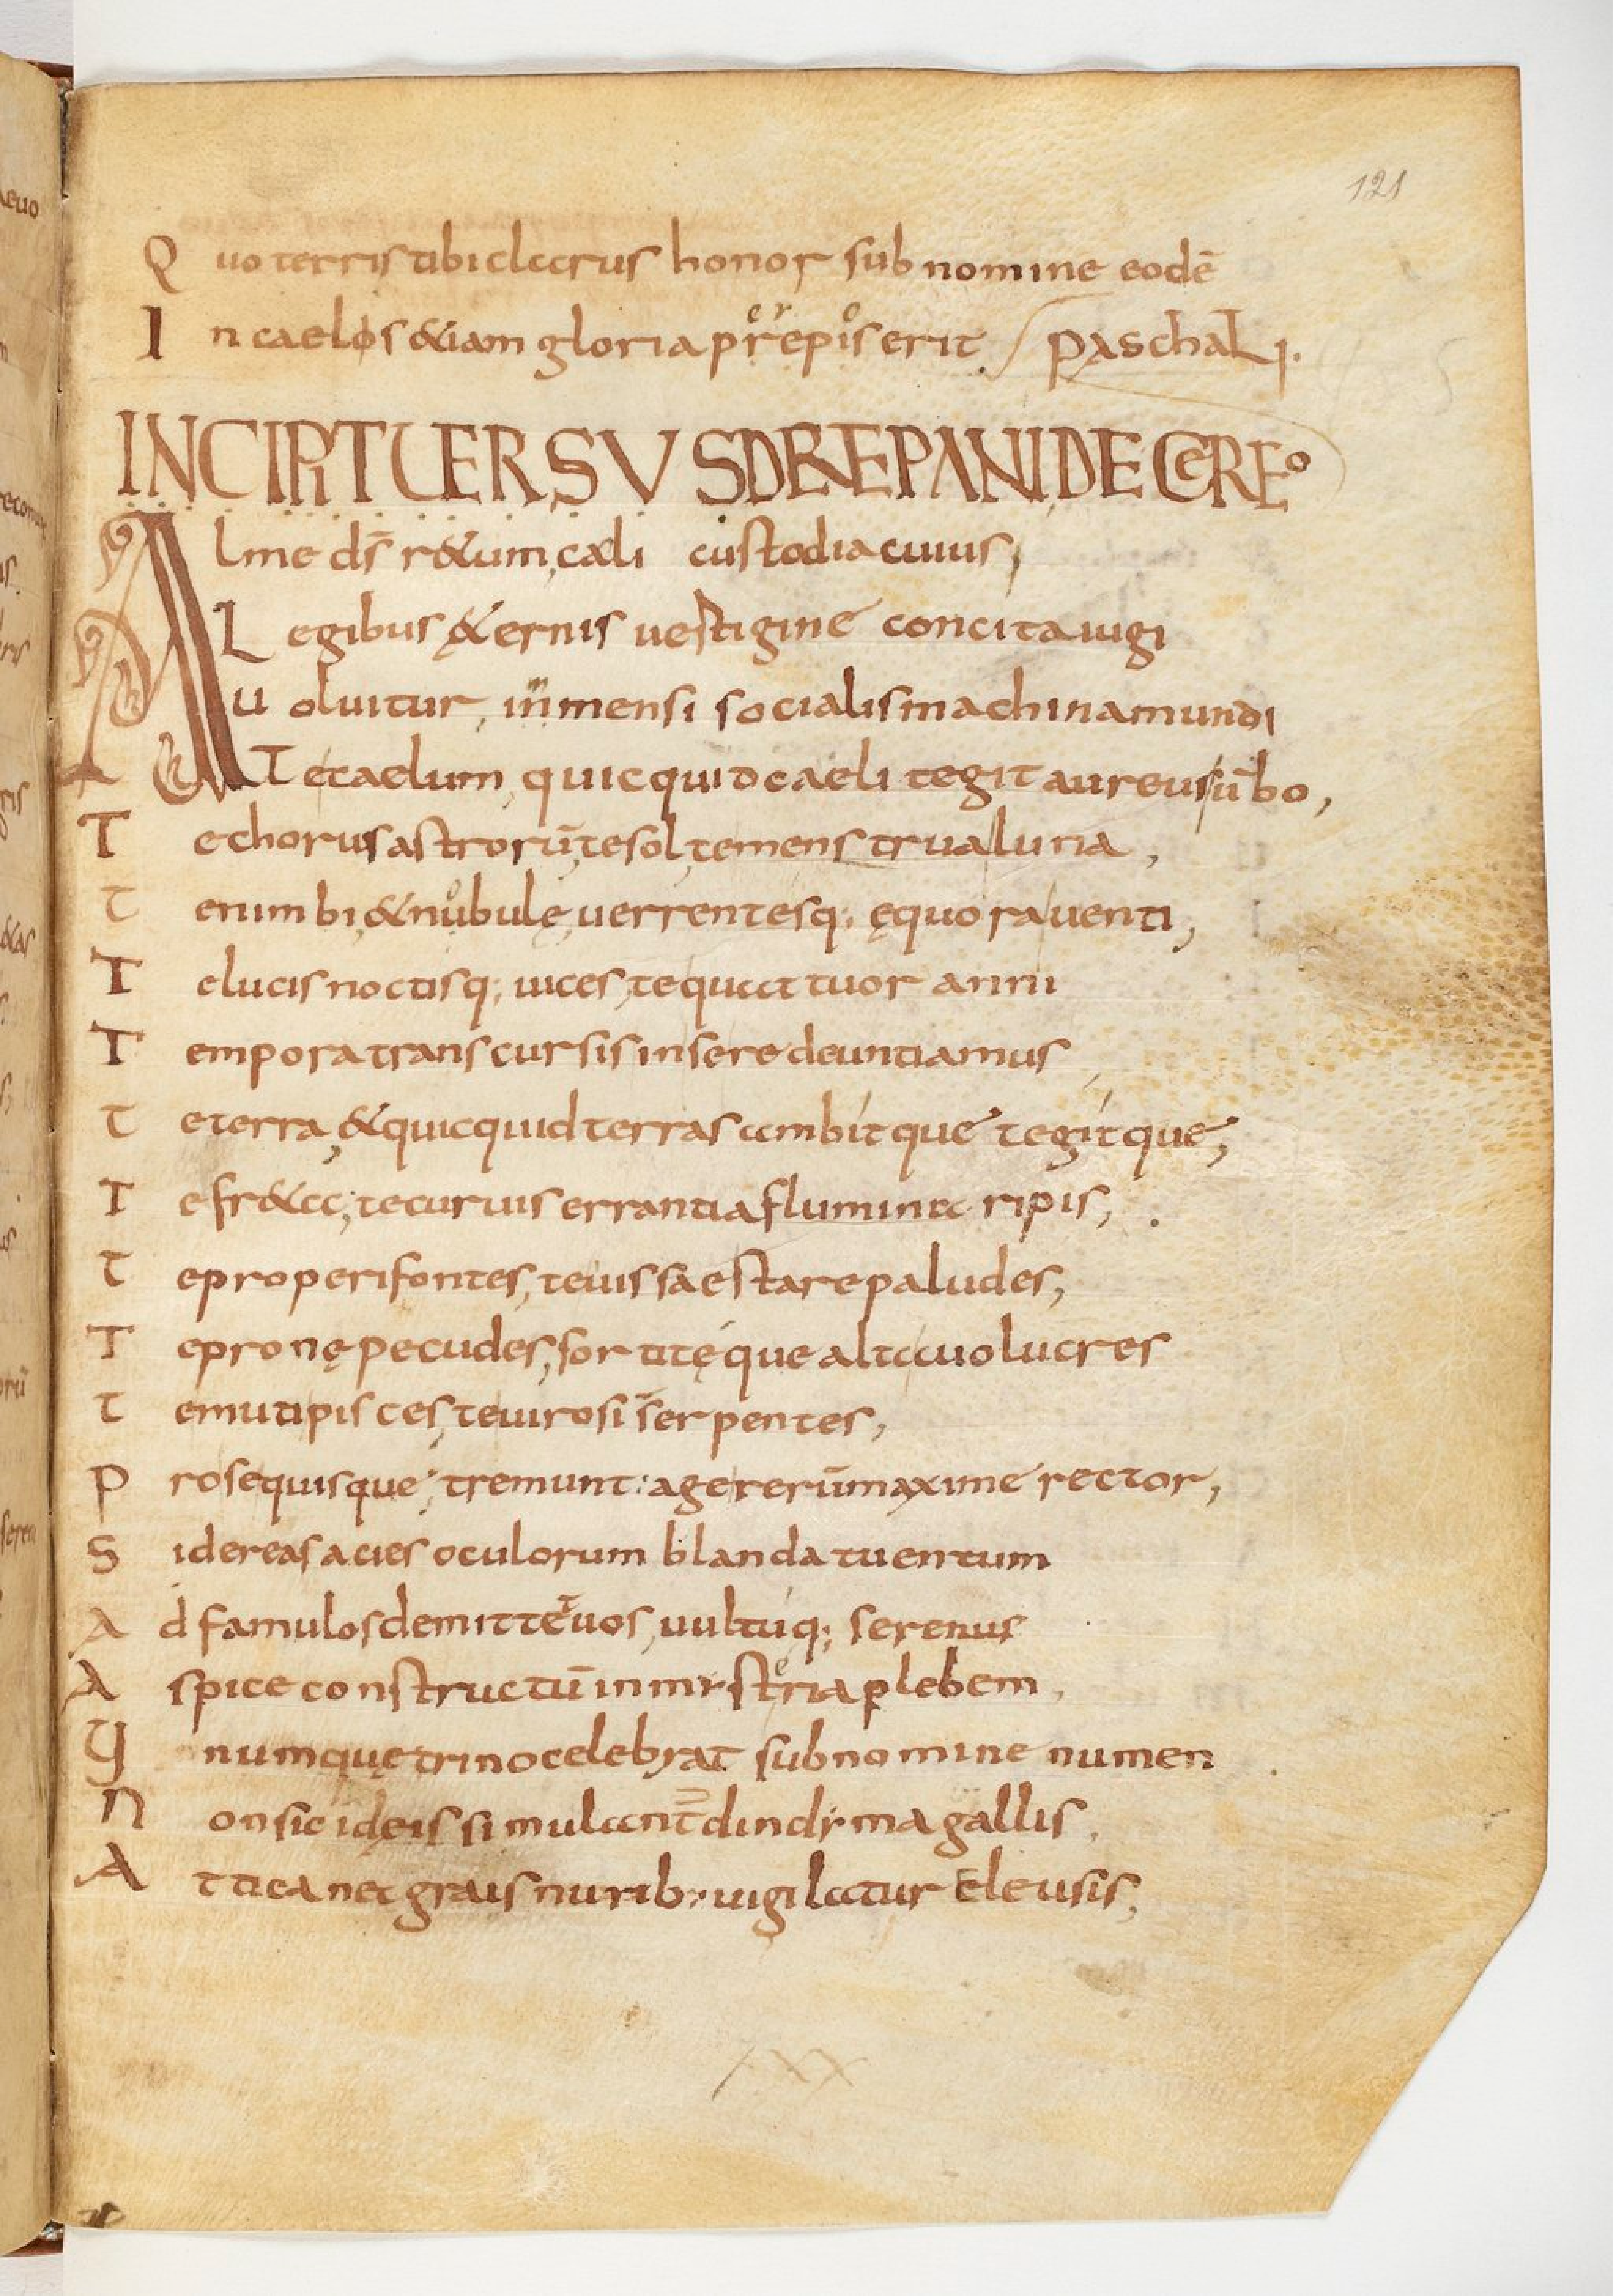 121
Quo terris tibi clarus honor sub nomine eodē
In caelos &iam gloria prepis erit paschali.
INCIPIT UERSUS DREPANI DE CEREO
Alme ds̄ r&um, cæli custodia cuius,
Legibus &ernis uestigine concita iugi
uoluitur, inmensi socialis machina mundi
Te caelum, quicquid caeli tegit aureus ūbo,
Te chorus astrorū, te sol, te menstrua luna,
te nimbi, & nubulę, uerrentesq; ęquora uenti,
Te lucis noctisq; uices, te quattuor anni
Tempora transcursis in sere deuntia mus
te terra, & quicquid terras ambit que tegit que,
Te fr&a; te curuis errantia flumina ripis,
te properi fontes, te iussae stare paludes,
Te pronę pecudes, sortitę que alta uolucres
te muti pisces, te uirosi serpentes,
Prosequisque; tremunt: age rerū maxime rector,
Sidereas acies oculorum blanda tuentum
Ad famulos demitte tuos, uultuq; serenus
Aspice constructū in mysteria plebem,
Unumquę trino celebrat sub nomine numen
Non sic idęis simulant dindyma gallis,
Attica nec grais nurib; uigilatur Eleusis,
XXX